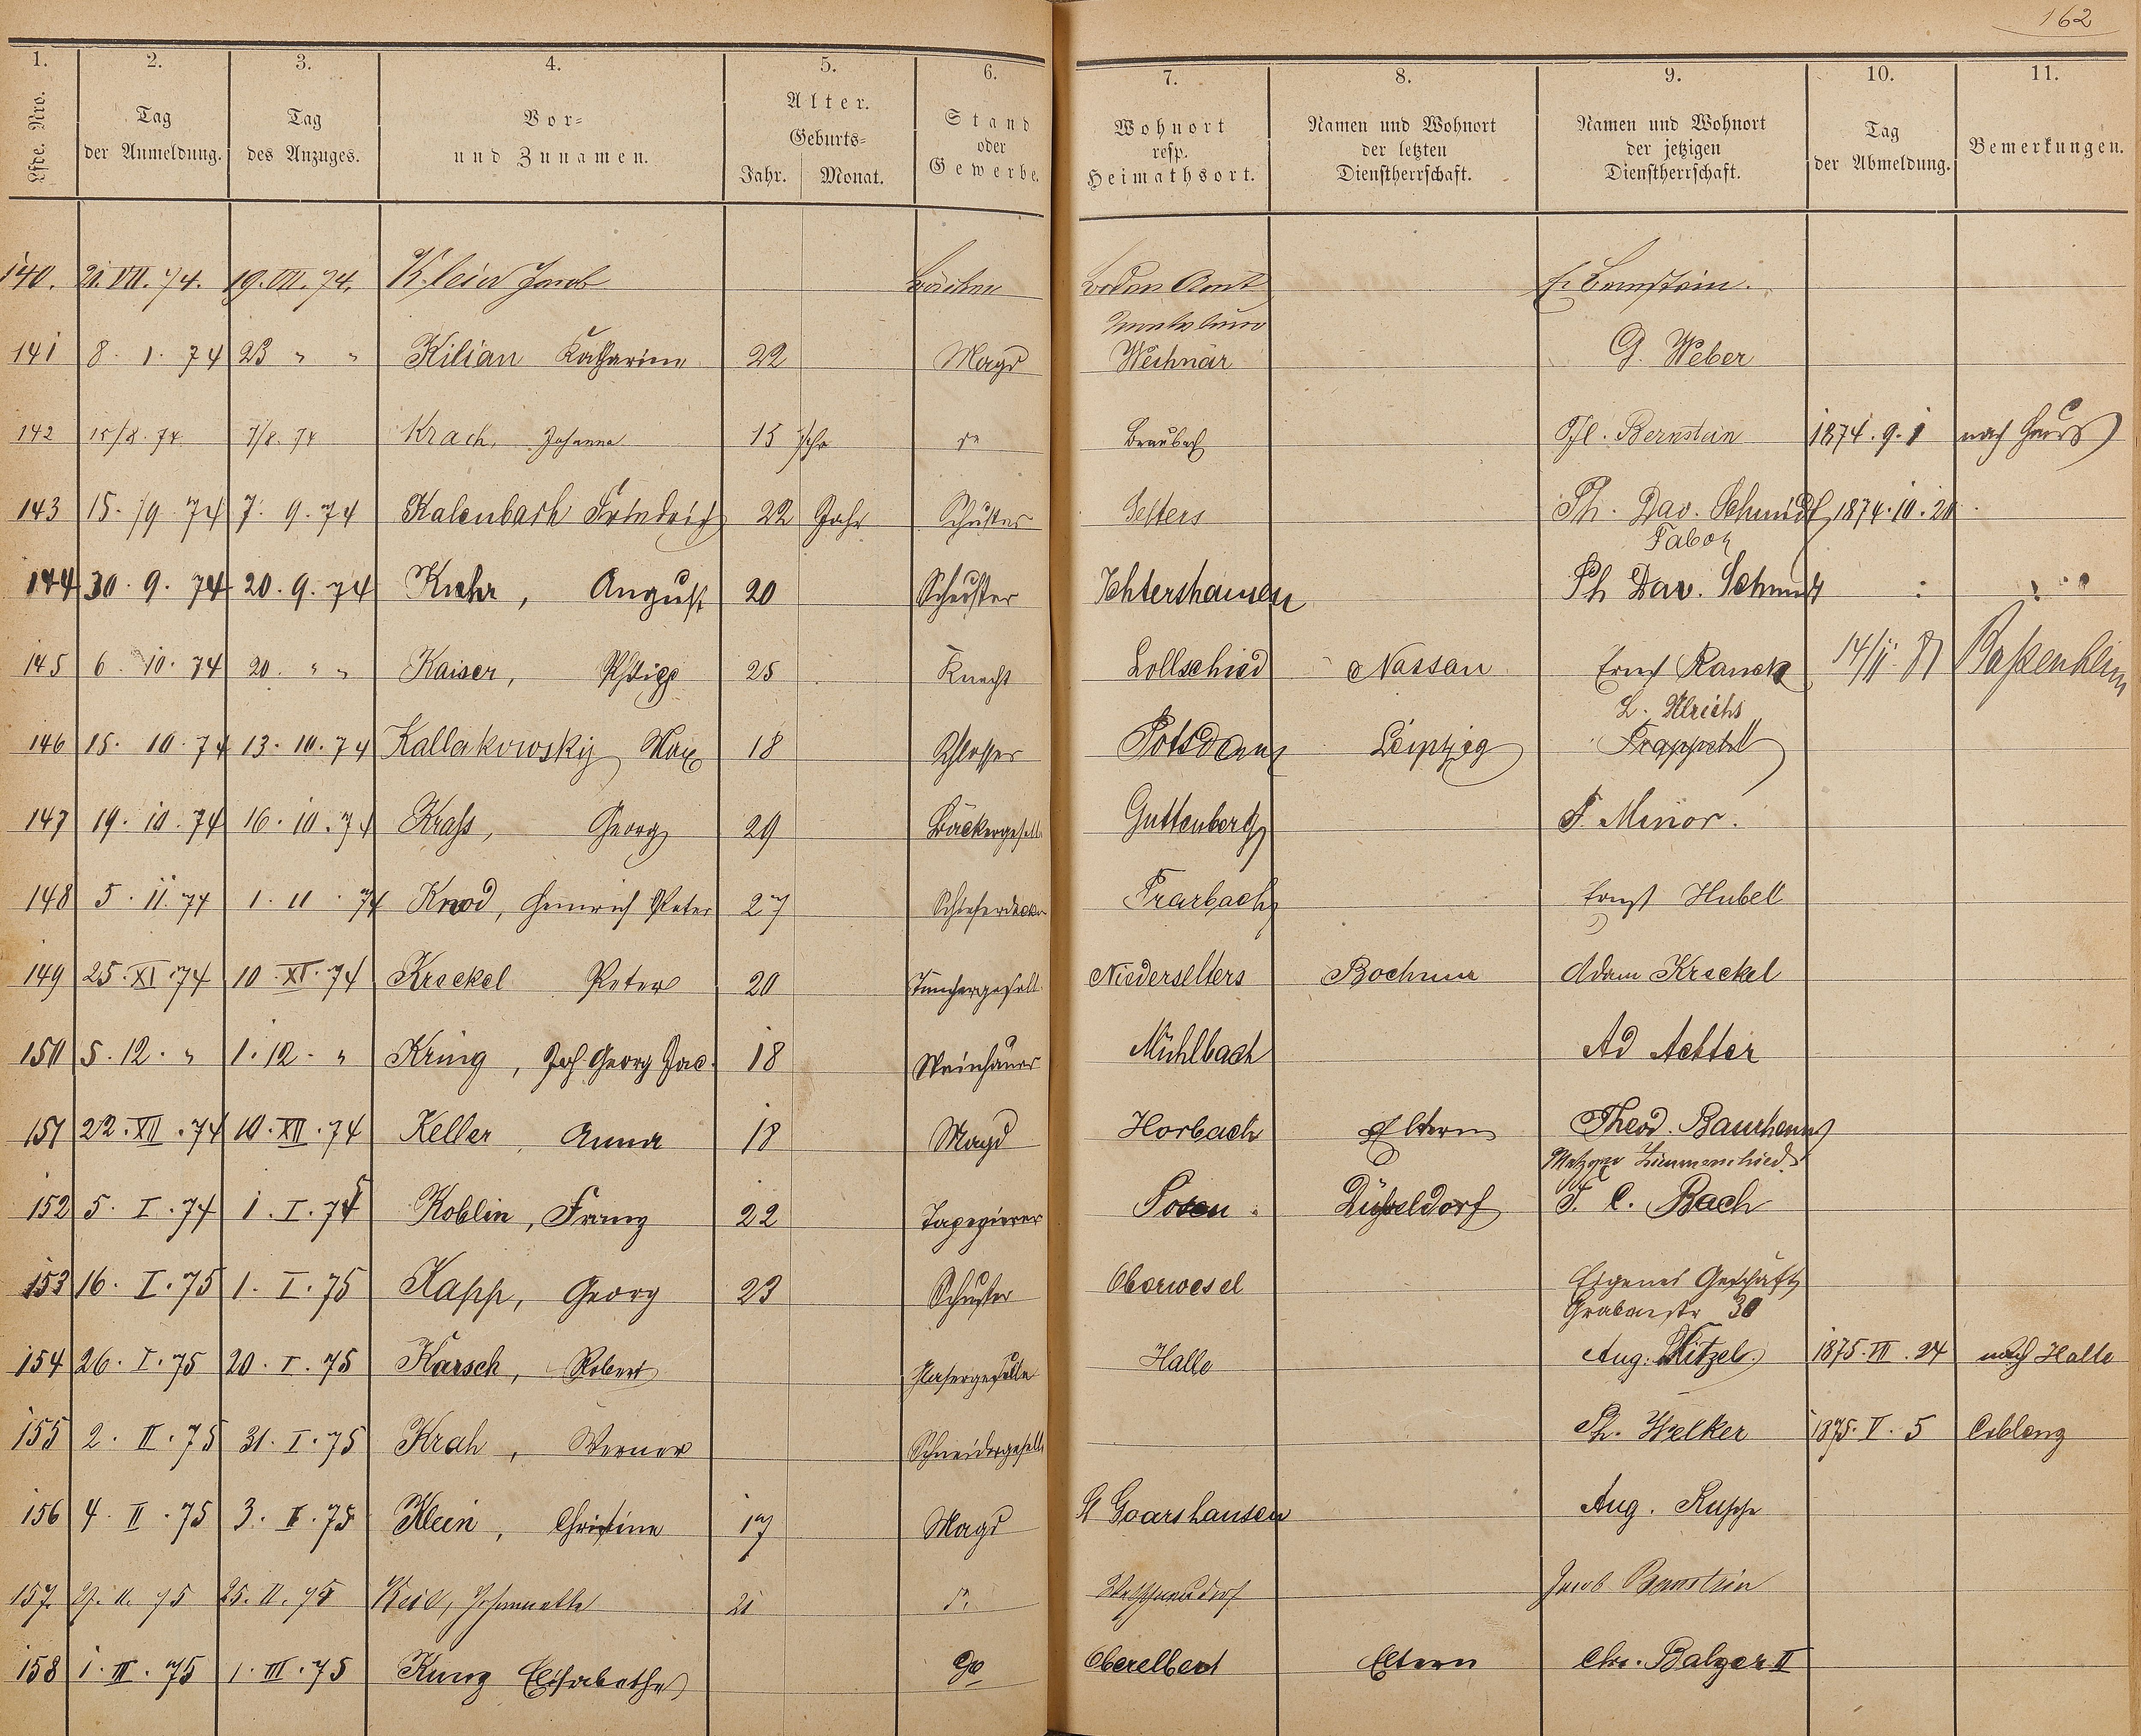 162
1. 2. 3. 4. 5. 6. 7. 8. 9. 10. 11.
Lfde. Nro. Tag der Anmeldung. Tag des Anzuges. Vor- und Zunamen. Alter. Geburts- Jahr. Monat. Stand oder Gewerbe. Wohnort resp. Heimathsort. Namen und Wohnort der letzten Dienstherrschaft. Namen und Wohnort der jetzigen Dienstherrschaft. Tag der Abmeldung. Bemerkungen.
140. 21. VII. 74. 19. VII. 74. Klein Jacob Amt Bernstein.
141 8. 1. 74 23 " " Kilian Katharina 22 Magd Weihnär G. Weber
142 15/8. 74. 7/8. 74 Krach, Johanna 15 Jahr do Braubach Bernstein 1874. 9. 1 nach Haus
143 15. /9. 74 7. 9. 74 Kalenbach Friedrich 22 Jahr Schuster Selters Ph. Dav. Schmidt 1874. 10. 20.
144 30. 9. 74 20. 9. 74 Kuhr, August 20 Schuster Ichtershausen Ph Dav. Schmidt
145 6. 10. 74 20. " " Kaiser, Philipp 25 Knecht Lollschied Nassau Ernst Ranck 14/II. 81 Baßenheim
L. Ulrichs
146 15. 10. 74 13. 10. 74 Kallakowsky Max 18 Schlosser Potsdam Leipzig
147 19. 10. 74 16. 10. 74 Krass, Georg 29 Bäckergesell Guttenberg F. Minor.
148 5. 11. 74 1. 11. 74 Knod, Heinrich Peter 27 Schieferdecker Trarbach Ernst Hubell
149 25. XI. 74 10. XI. 74 Kreckel Peter 20 Tünchergesell. Niederselters Bochum Adam Kreckel
150 5. 12. " 1. 12. " Kring, Joh Georg Jac. 18 Steinhauer Mühlbach Ad
151 22. XII. 74 10. XII. 74 Keller, Anna 18 Magd Horbach Eltern Theod. Baurhenn
Metzger Zimmerschied
152 5. I. 74 1. I. 75 Koblin, Franz 22 Tapezierer Posen. Düsseldorf F. C. Bach
153 16. I. 75 1. I. 75 Kapp, Georg 23 Schuster Oberwesel Eigenes Geschäft
Grabenstr 30
154 26. I. 75 20. I. 75 Karsch, Robert Glasergeselle Halle Aug. 1875. VII. 24 nach Halle
155 2. II. 75 31. I. 75 Krah, Werner Schneidergeselle Ph. Welker 1875. V. 5 Coblenz
156 4. II. 75 3. II. 75 Klein, Christine 17 Magd St Goarshausen Aug.
157. 27. II. 75 25. II. 75 Keil, Johannette 21 do Welschneudorf Jacob Bernstein
158 1. III. 75 1. III. 75 Kunz Elisabethe do Oberelbert Eltern Chr. Balzer II